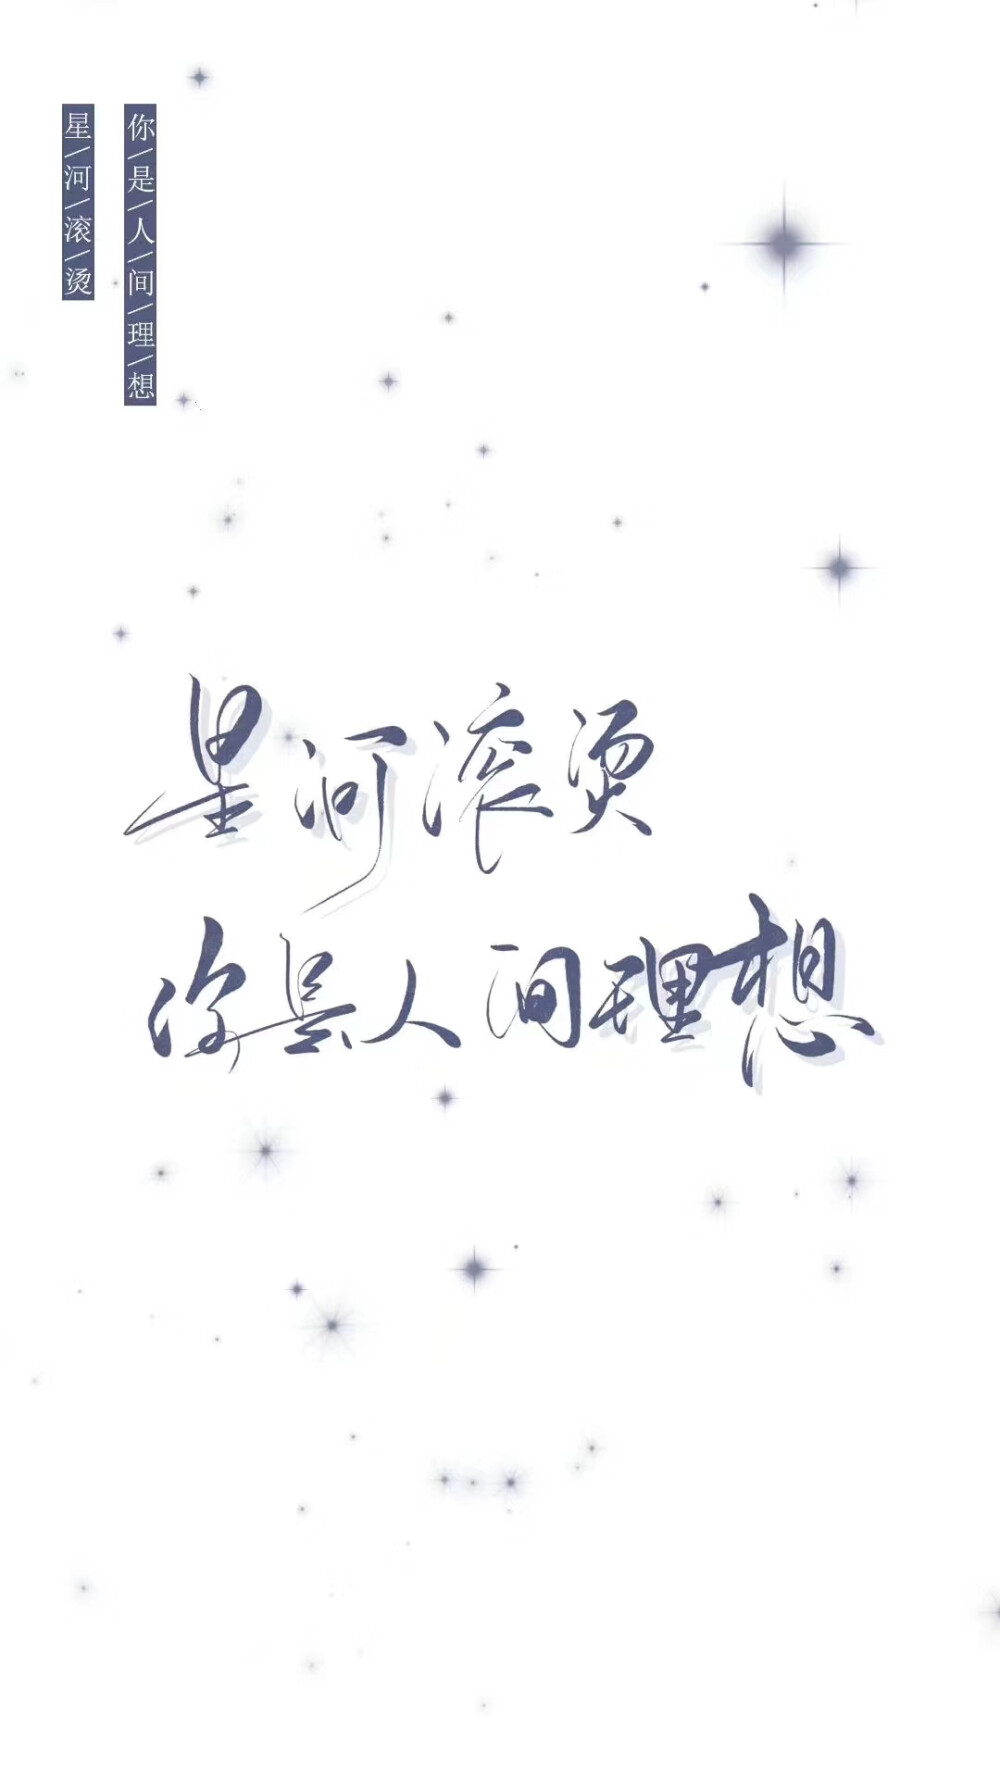 星/河/滚/烫
你/是/人/间/理/想
星河滚烫
你是人间理想